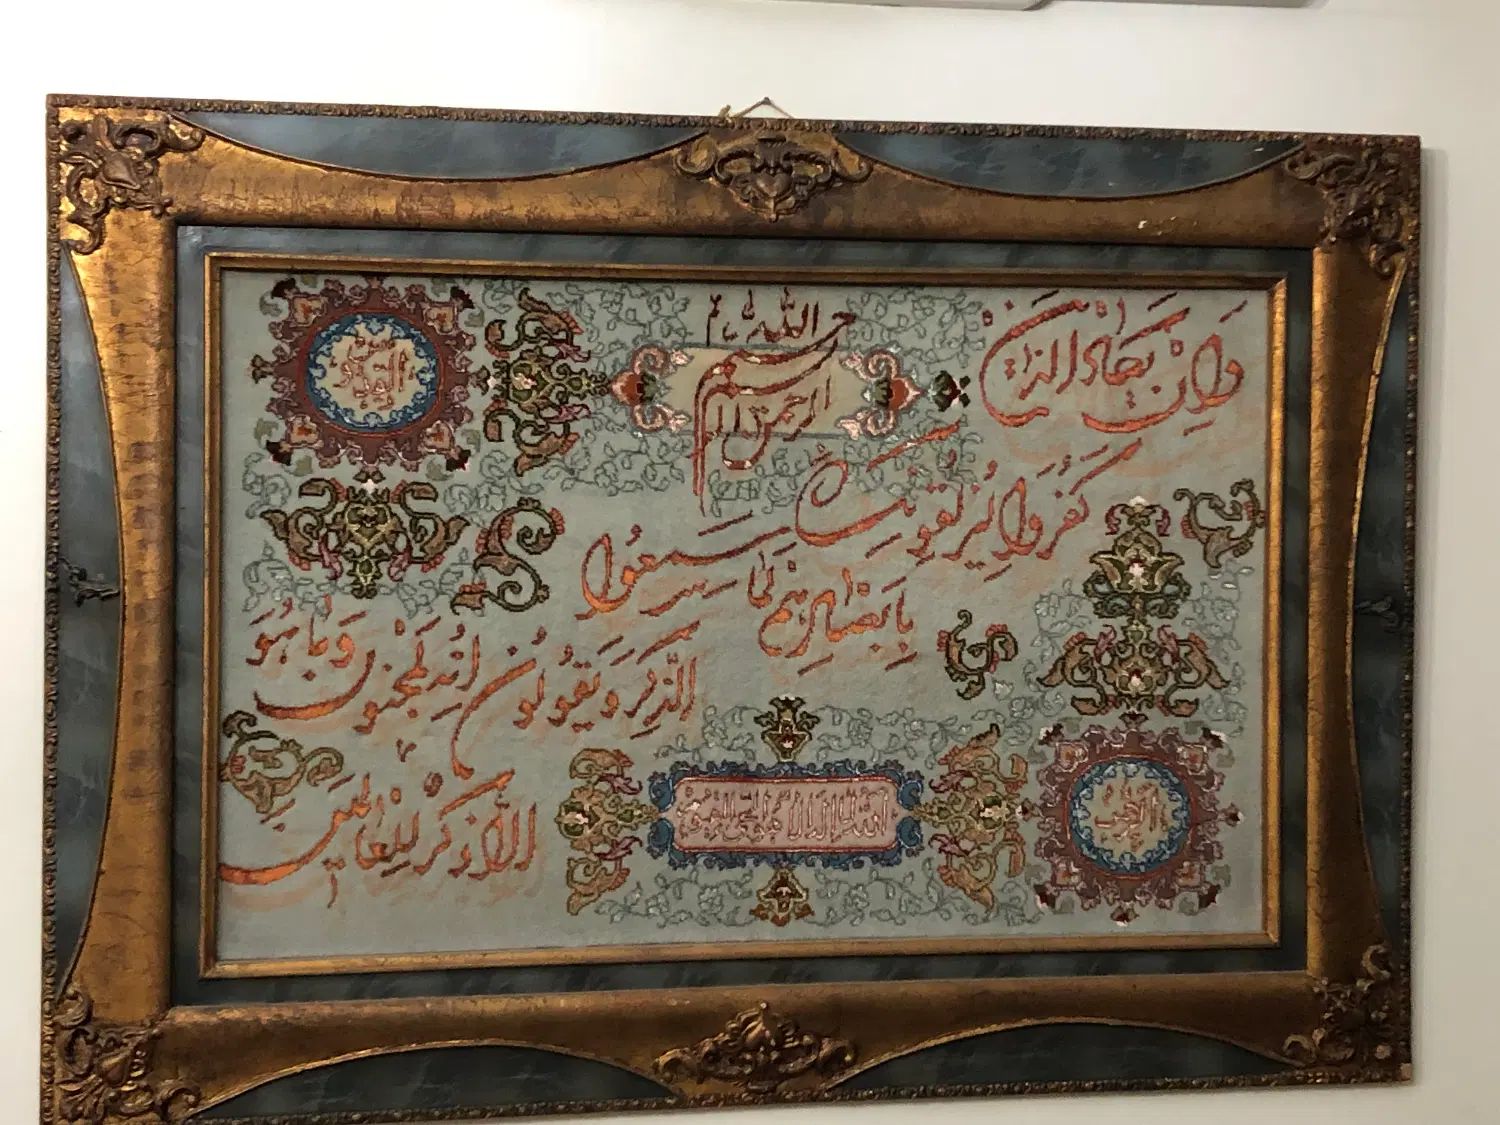 بسم الله الرحمن الرحيم
وَاِنْ يَكادُ الذَّينَ
كَفَرُوا لَيُزْلِقُونَكَ
بِاَبْصارِهِمْ لَمّا سَمِعُوا
الذِّكْرَ وَيَقُولُونَ اِنَّهُ لَمَجْنُونٌ وَما هُوَ
اِلاّ ذِكْرٌ لِلْعالَمينَ
الله لا اله الا هو الحي القيوم